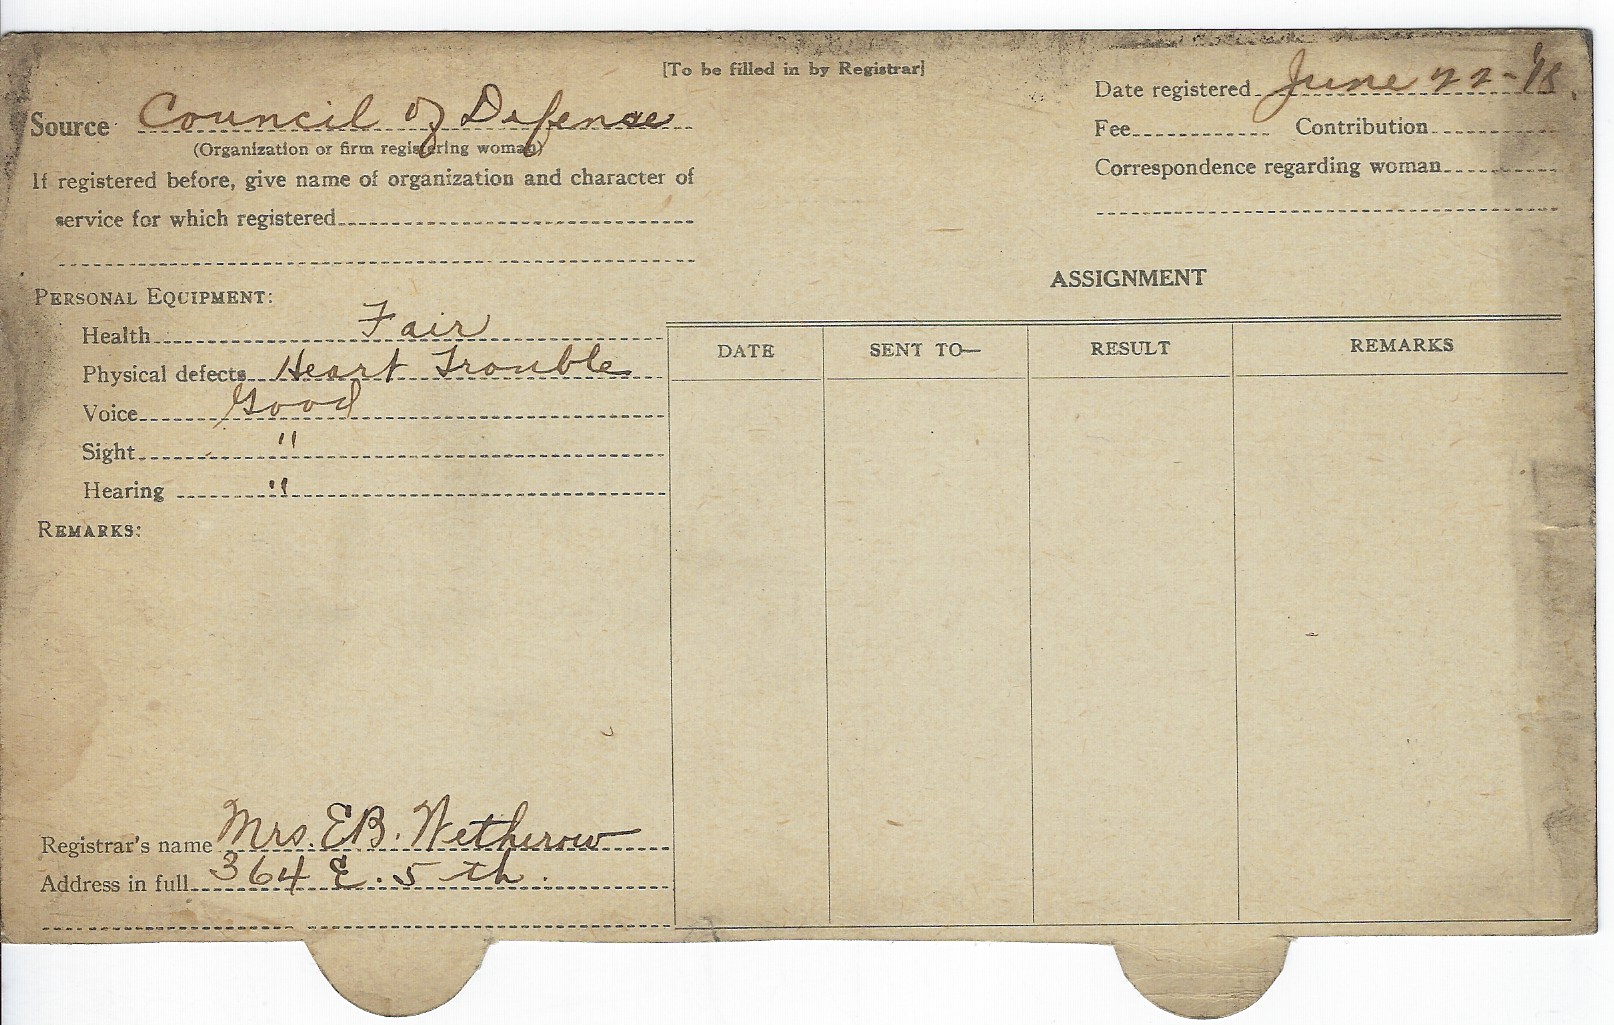 [To be filled in by Registrar]
Source Council of Defense
(Organization or firm registering woman)
If registered before, give name of organization and character of
service for which registered
Date registered June 22-'18.
Fee Contribution
Correspondence regarding woman
PERSONAL EQUIPMENT:
Health Fair
Physical defects Heart Trouble
Voice Good
Sight "
Hearing "
REMARKS:
Registrar's name Mrs. E.B. Wetherow
Address in full 364 E. 5th.
ASSIGNMENT
DATE SENT TO— RESULT REMARKS